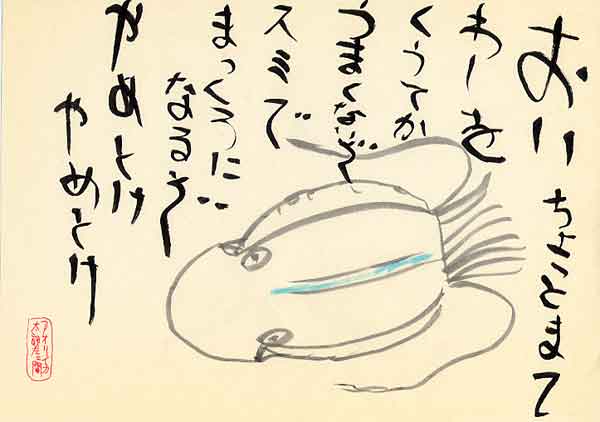 おい ちょっとまて
わしを
くうても
うまくないぞ
スミで
まっくろに
なるぞ
やめとけ
やめとけ
アオリイカ